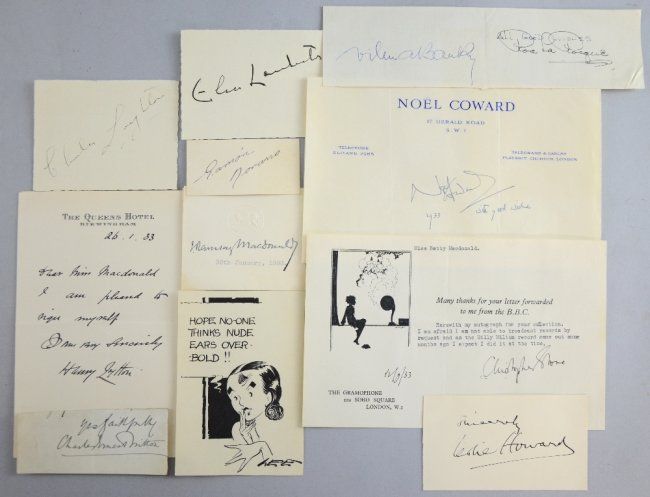 Charles
Laughton
Vilma Banky
NOËL COWARD
17 GERALD ROAD
S. W. 1
TELEPHONE
TELEGRAMS & CABLES
PLAYBOY, CHURTON, LONDON
Noël Coward
1933
with good wishes
Ramon
Novarro
J Ramsay MacDonald
30th January, 1933.
THE QUEENS HOTEL
BIRMINGHAM
26.1.33
Dear Miss Macdonald
I am pleased to
sign myself
Yours Sincerely
Henry Lytton
yrs faithfully
HOPE NO-ONE
THINKS NUDE
EARS OVER-
BOLD !!
Miss Betty Macdonald.
Many thanks for your letter forwarded
to me from the B.B.C.
Herewith my autograph for your collection.
I am afraid I am not able to broadcast records by
request and as the Billy Milton record came out some
months ago I expect I did it at the time.
Christopher Stone
THE GRAMOPHONE
10a SOHO SQUARE
LONDON, W.1
sincerely
Leslie Howard